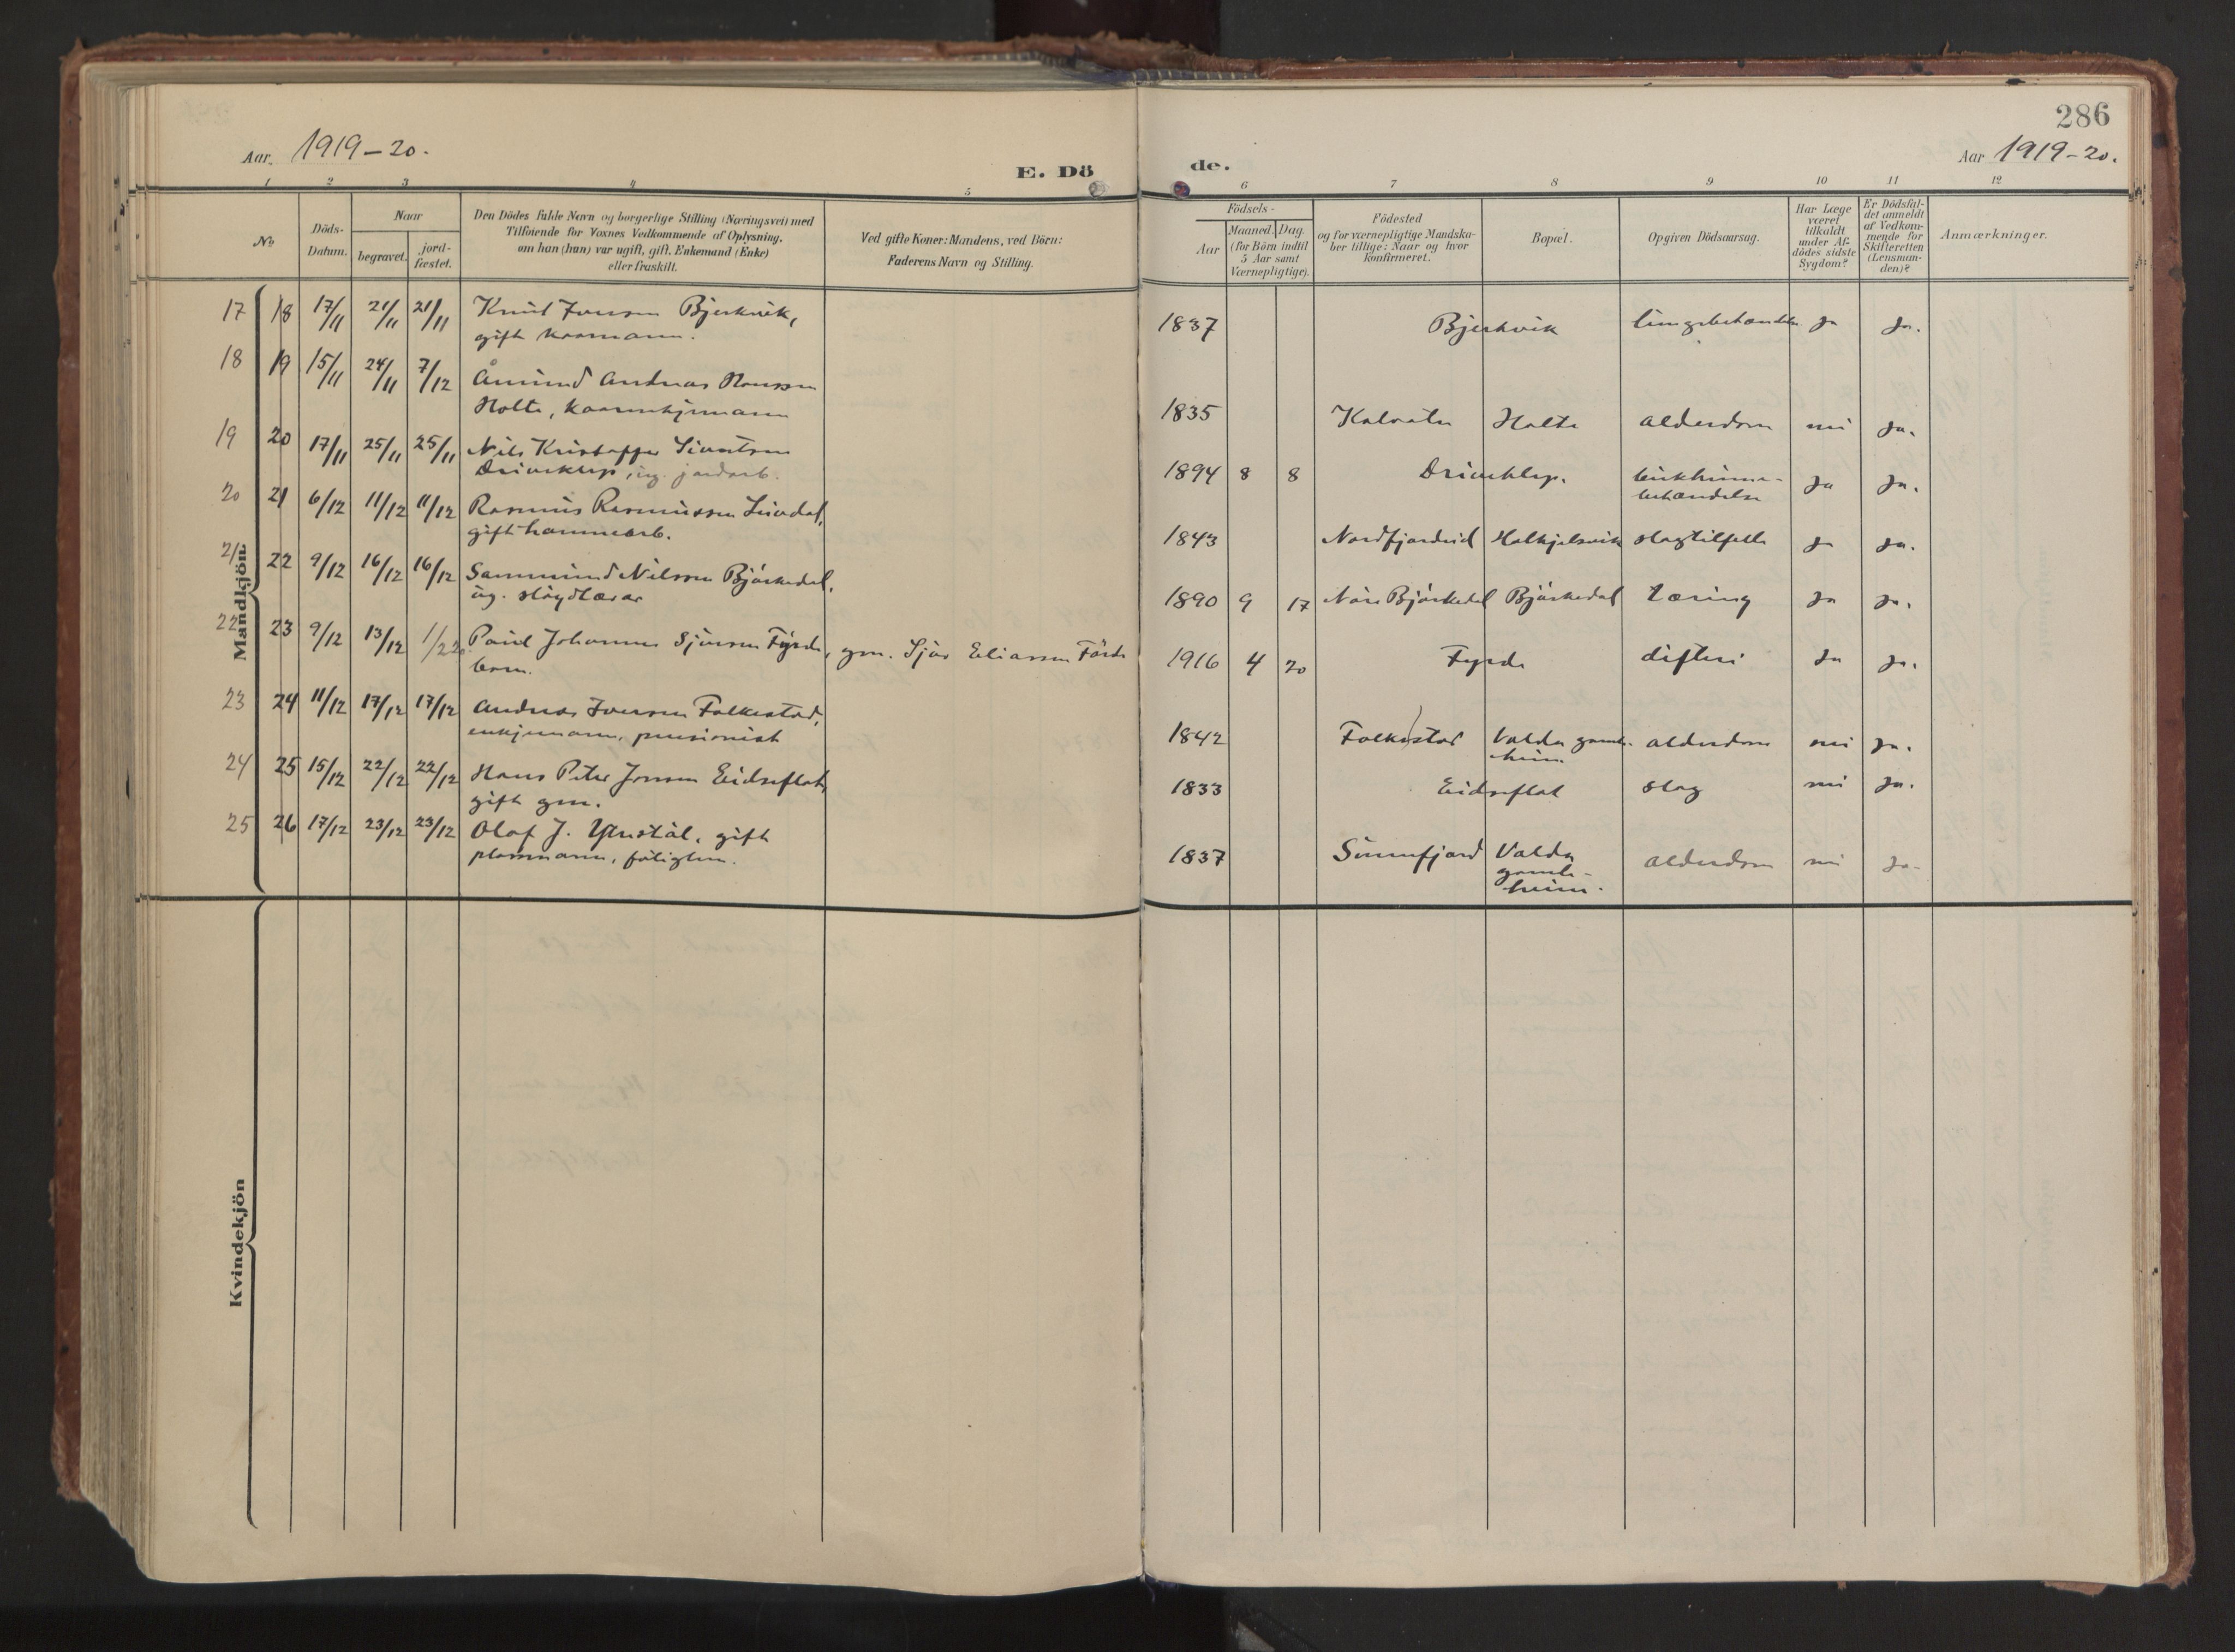 286
Aar. 1919-20.
Aar 1919-20.
E. Dö
de.
1 2 3 4 5
6 7 8 9 10 11 12
No
Döds-
Datum.
Naar
begravet.
jord-
fæstet.
Den Dödes fulde Navn og borgerlige Stilling (Næringsvei) med
Tilföiende for Voxnes Vedkommende af Oplysning,
om han (hun) var ugift, gift, Enkemand (Enke)
eller fraskilt.
Ved gifte Koner: Mandens, ved Börn:
Faderens Navn og Stilling.
Födsels-
Aar
Maaned. Dag.
(for Börn indtil
5 Aar samt
Værnepligtige).
Födested
og for værnepligtige Mandska-
ber tillige: Naar og hvor
konfirmeret.
Bopæl.
Opgiven Dödsaarsag.
Har Læge
været
tilkaldt
under Af-
dödes sidste
Sygdom?
Er Dödsfal-
det anmeldt
af Vedkom-
mende for
Skifteretten
(Lensman-
den)?
Anmærkninger.
Mandkjön
17 18 17/11 21/11 21/11 Knut Iversen Bjerkvik,
gift kaarmann.
1837 Bjerkvik lungebetændelse ja ja.
18 19 15/11 24/11 7/12 Åmund Andreas Hansen
Holte, kaarenkjemann
1835 Kalvatn Holte alderdom nei ja.
19 20 17/11 25/11 25/11 Nils Kristoffer Sivertsen
Driveklep, ug. jordarb.
1894 8 8 Driveklep. bukhinne-
betændelse ja ja.
20 21 6/12 11/12 11/12 Rasmus Rasmussen Lievdal,
gift havnearb.
1843 Nordfjordeid Halkjelsvik slagtilfelle ja ja.
21 22 9/12 16/12 16/12 Sammund Nilssen Bjørkedal,
ug. sløydlærar
1890 9 17 Nore Bjørkedal Bjørkedal tæring ja ja.
22 23 9/12 13/12 1/2 20. Paul Johannes Sjursen Fyrde,
barn.
gm. Sjur Eliassen Förde
1916 4 20 Fyrde difteri ja ja.
23 24 11/12 17/12 17/12 Andreas Iversen Folkestad,
enkjemann, pensionist
1842 Folkestad Valda gamle-
heim alderdom nei ja.
24 25 15/12 22/12 22/12 Hans Peter Jonsen Eidseflat,
gift gm.
1833 Eidseflat slag nei ja.
25 26 17/12 23/12 23/12 Olaf J. Ytrestöl, gift
plassmann, fatiglem.
1837 Sunnfjord Valda
gamle-
heim. alderdom nei ja.
Kvindekjön